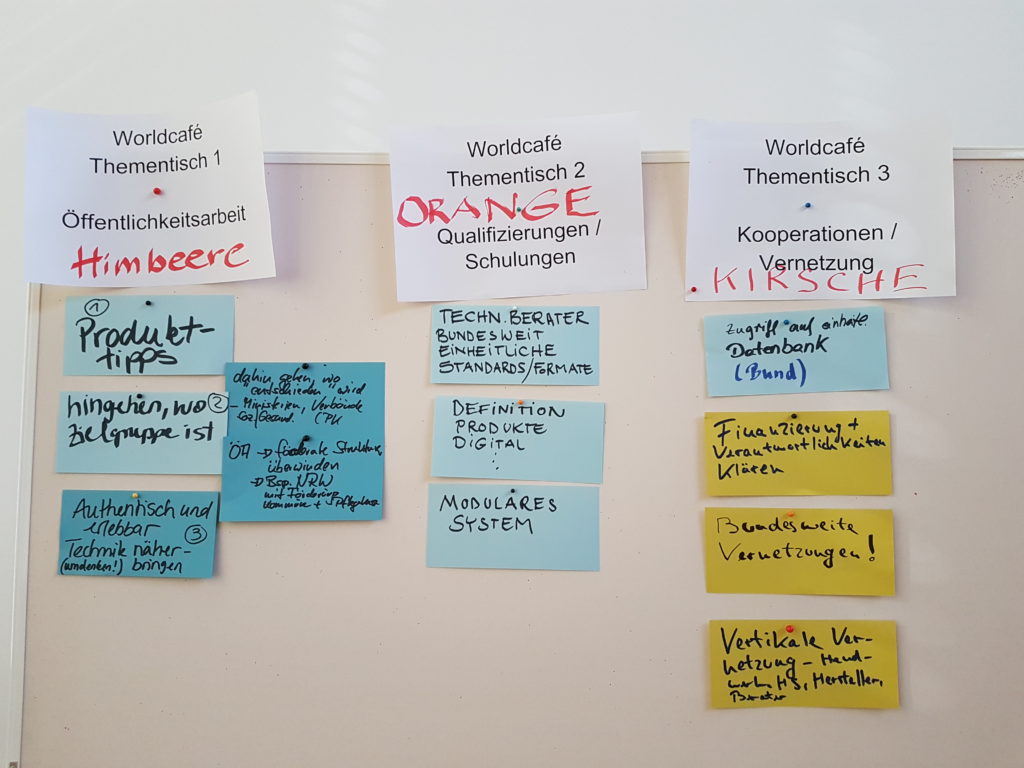 Worldcafé
Thementisch 1
Öffentlichkeitsarbeit
Himbeere
①
Produkt-
tipps
hingehen, wo ②
Zielgruppe ist
Authentisch und
erlebbar ③
Technik näher-
(umdenken!) bringen
dahin gehen, wo
entschieden wird
- Ministerien, Verbände
ÖA → föderale Strukturen
überwinden
→ Bsp. NRW
mit Förderung
Kommune +
Worldcafé
Thementisch 2
ORANGE
Qualifizierungen /
Schulungen
TECHN. BERATER
BUNDESWEIT
EINHEITLICHE
STANDARDS/FORMATE
DEFINITION
PRODUKTE
DIGITAL
:
MODULARES
SYSTEM
Worldcafé
Thementisch 3
Kooperationen /
Vernetzung
KIRSCHE
Zugriff auf einheitl.
Datenbank
(Bund)
Finanzierung +
Verantwortlichkeiten
Klären
Bundesweite
Vernetzungen!
Vertikale Ver-
netzung - Hand-
werk, HS, Hersteller,
Berater